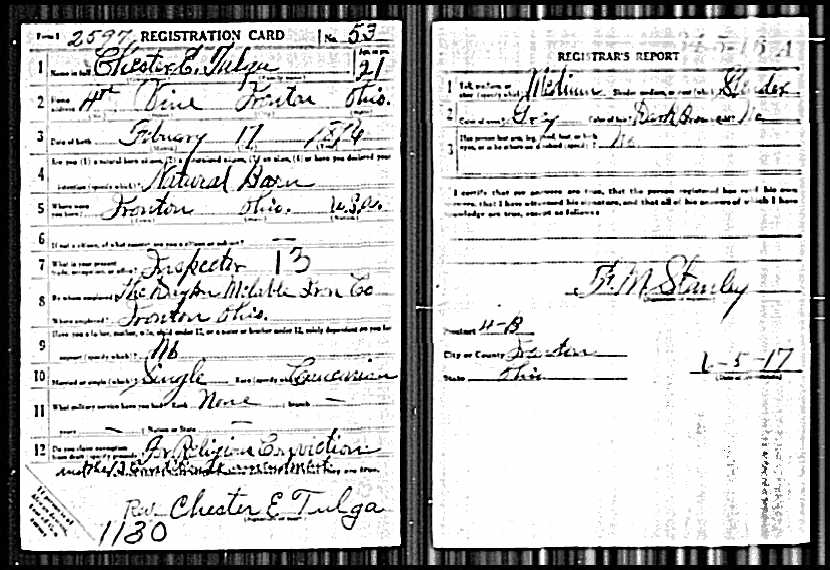 Form 1 2597 REGISTRATION CARD No. 53
1 Name in full Chester E. Tulga Age, in yrs. 21
2 Home address 4th Vine Ironton Ohio.
3 Date of birth Febuary 17 1896
4 Are you (1) a natural born citizen, (2) a naturalized citizen, (3) an alien, (4) or have you declared your
intention (specify which)? Natural Born
5 Where were you born? Ironton Ohio. U.S.A.
6 If not a citizen, of what country are you a citizen or subject? —
7 What is your present trade, occupation, or office? Inspector 13
8 By whom employed? The Dayton Maleable Iron Co
Where employed? Ironton Ohio.
9 Have you a father, mother, wife, child under 12, or a sister or brother under 12, solely dependent on you for
support (specify which)? No
10 Married or single (which)? Single Race (specify which)? Caucasian
11 What military service have you had? Rank None branch —
years — Nation or State —
12 Do you claim exemption from draft (specify grounds)? For Religion Conviction
and the
Rev. Chester E Tulga
1130
REGISTRAR'S REPORT
1 Tall, medium, or short (specify which)? Medium Slender, medium, or stout (which)? Slender
2 Color of eyes? Grey Color of hair? Dark Brown Bald? No
3 Has person lost arm, leg, hand, foot, or both eyes, or is he otherwise disabled (specify)? No
I certify that my answers are true, that the person registered has read his own
answers, that I have witnessed his signature, and that all of his answers of which I have
knowledge are true, except as follows:
M Stanley
Precinct 4-B
City or County Ironton
State Ohio 6-5-17
(Date of registration)